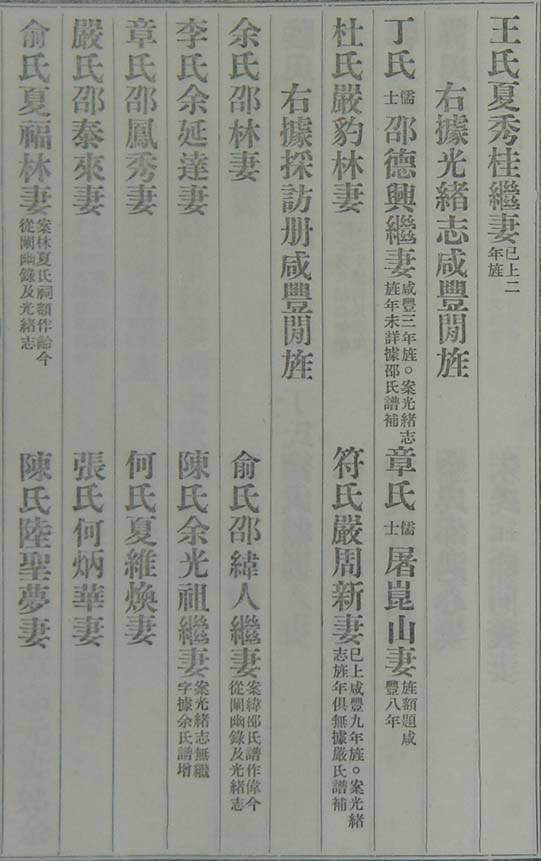 王氏夏秀桂繼妻已上二年旌
右據光緒志咸豐閒旌
丁氏儒士邵德興繼妻咸豐三年旌○案光緒志旌年未詳據邵氏譜補 章氏儒士屠崑山妻旌額題咸豐八年
杜氏嚴豹林妻 符氏嚴周新妻已上咸豐九年旌○案光緒志旌年俱無據嚴氏譜補
右據採訪册咸豐閒旌
余氏邵林妻 俞氏邵緯人繼妻案緯邵氏譜作偉今從闡幽錄及光緒志
李氏余延達妻 陳氏余光祖繼妻案光緒志無繼字據余氏譜增
章氏邵鳳秀妻 何氏夏維煥妻
嚴氏邵泰來妻 張氏何炳華妻
俞氏夏福林妻案林夏氏祠額作齡今從闡幽錄及光緒志 陳氏陸聖夢妻